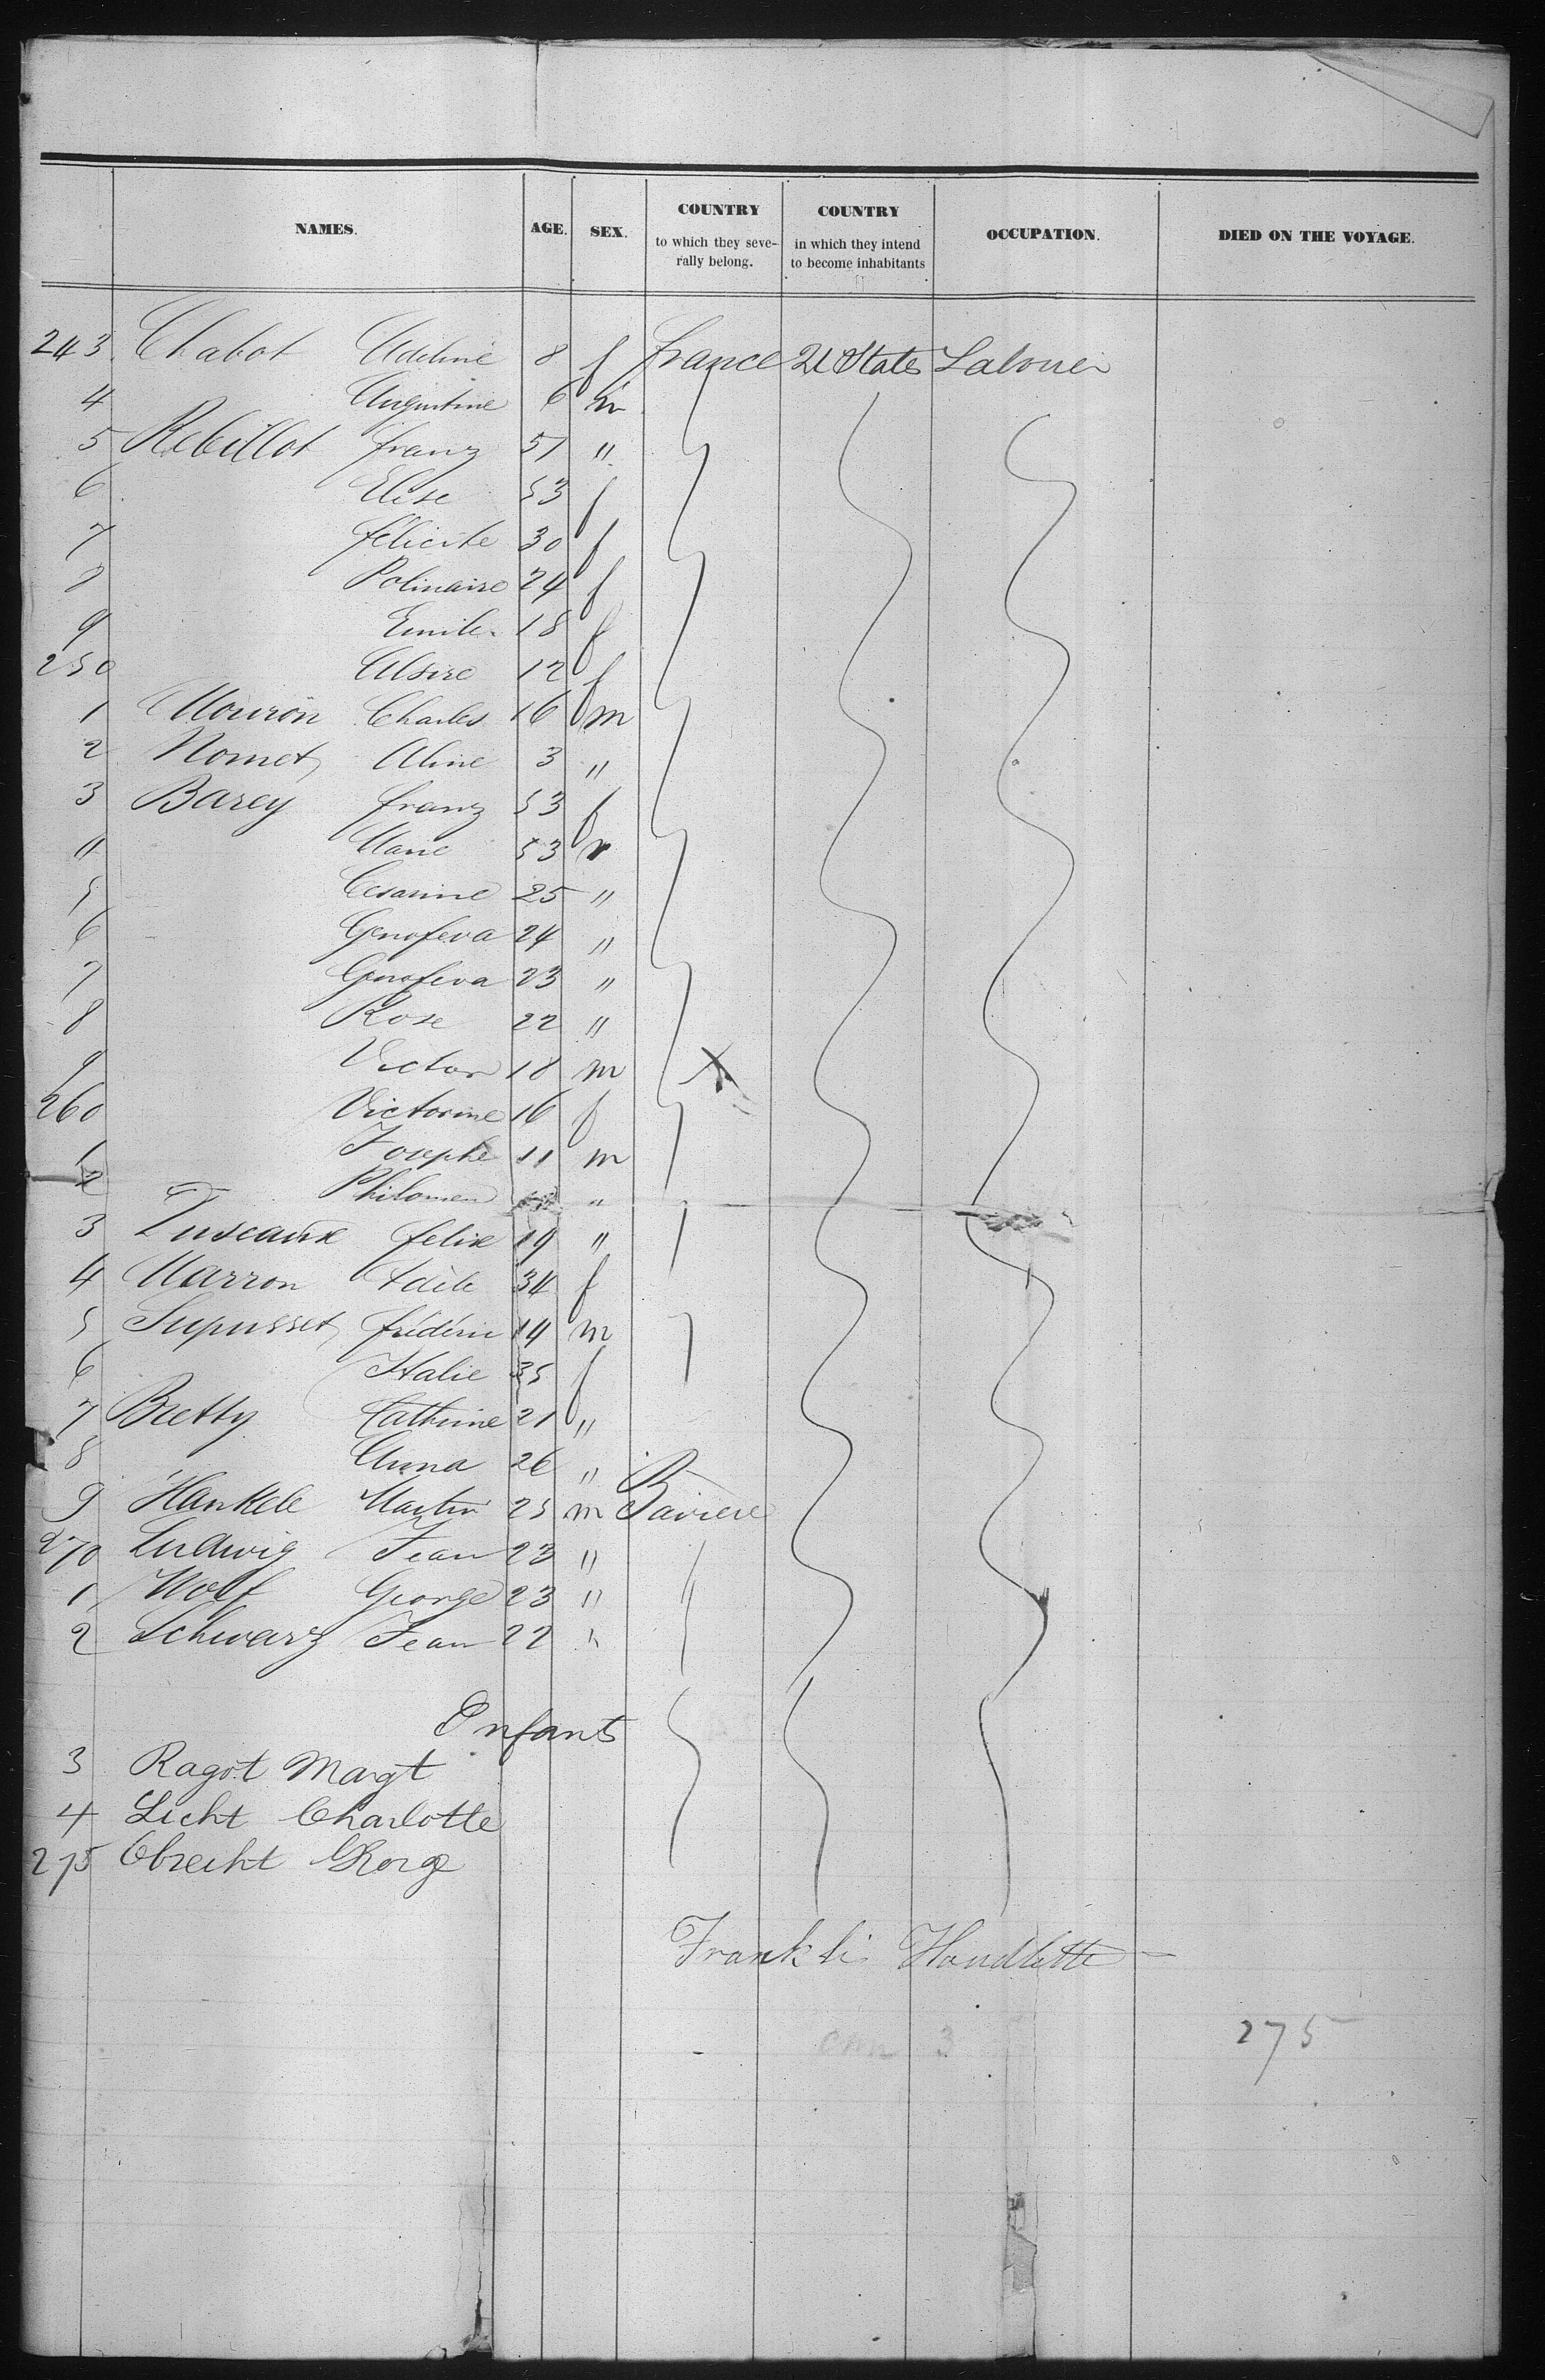 NAMES. AGE. SEX. COUNTRY to which they seve-rally belong. COUNTRY in which they intend to become inhabitants OCCUPATION. DIED ON THE VOYAGE.
243 Chabot Adeline 8 f france U States Labourer
4 Augustine 6 m
5 Rebillot franz 51 "
6 Elise 53 f
7 félicite 30 f
8 Polinaire 24 f
9 Emile 18 f
250 Alsire 12 f
1 Mouron Charles 16 m
2 Nomet Aline 3 "
3 Barey franz 53 f
4 Marie 53
5 Cesarine 25 "
6 Genofeva 24 "
7 Genofeva 23 "
8 Rose 22 "
9 Victor 18 m
260 Victorine 16 f
1 Josephe 11 m
2 Philomen "
3 Duseaux felix 19 "
4 Marron Adèle 34 f
5 Supusset frédéric 14 m
6 Italie 35 f
7 Bretty Cathrine 21 "
8 Anna 26 "
9 Hankele Martin 25 m Baviere
270 Ludwig Jean 23 "
1 Wolf George 23 "
2 Schwarz Jean 22 "
Enfants
3 Ragot Margt
4 Licht Charlotte
275 Obrecht George
Houdlette
275